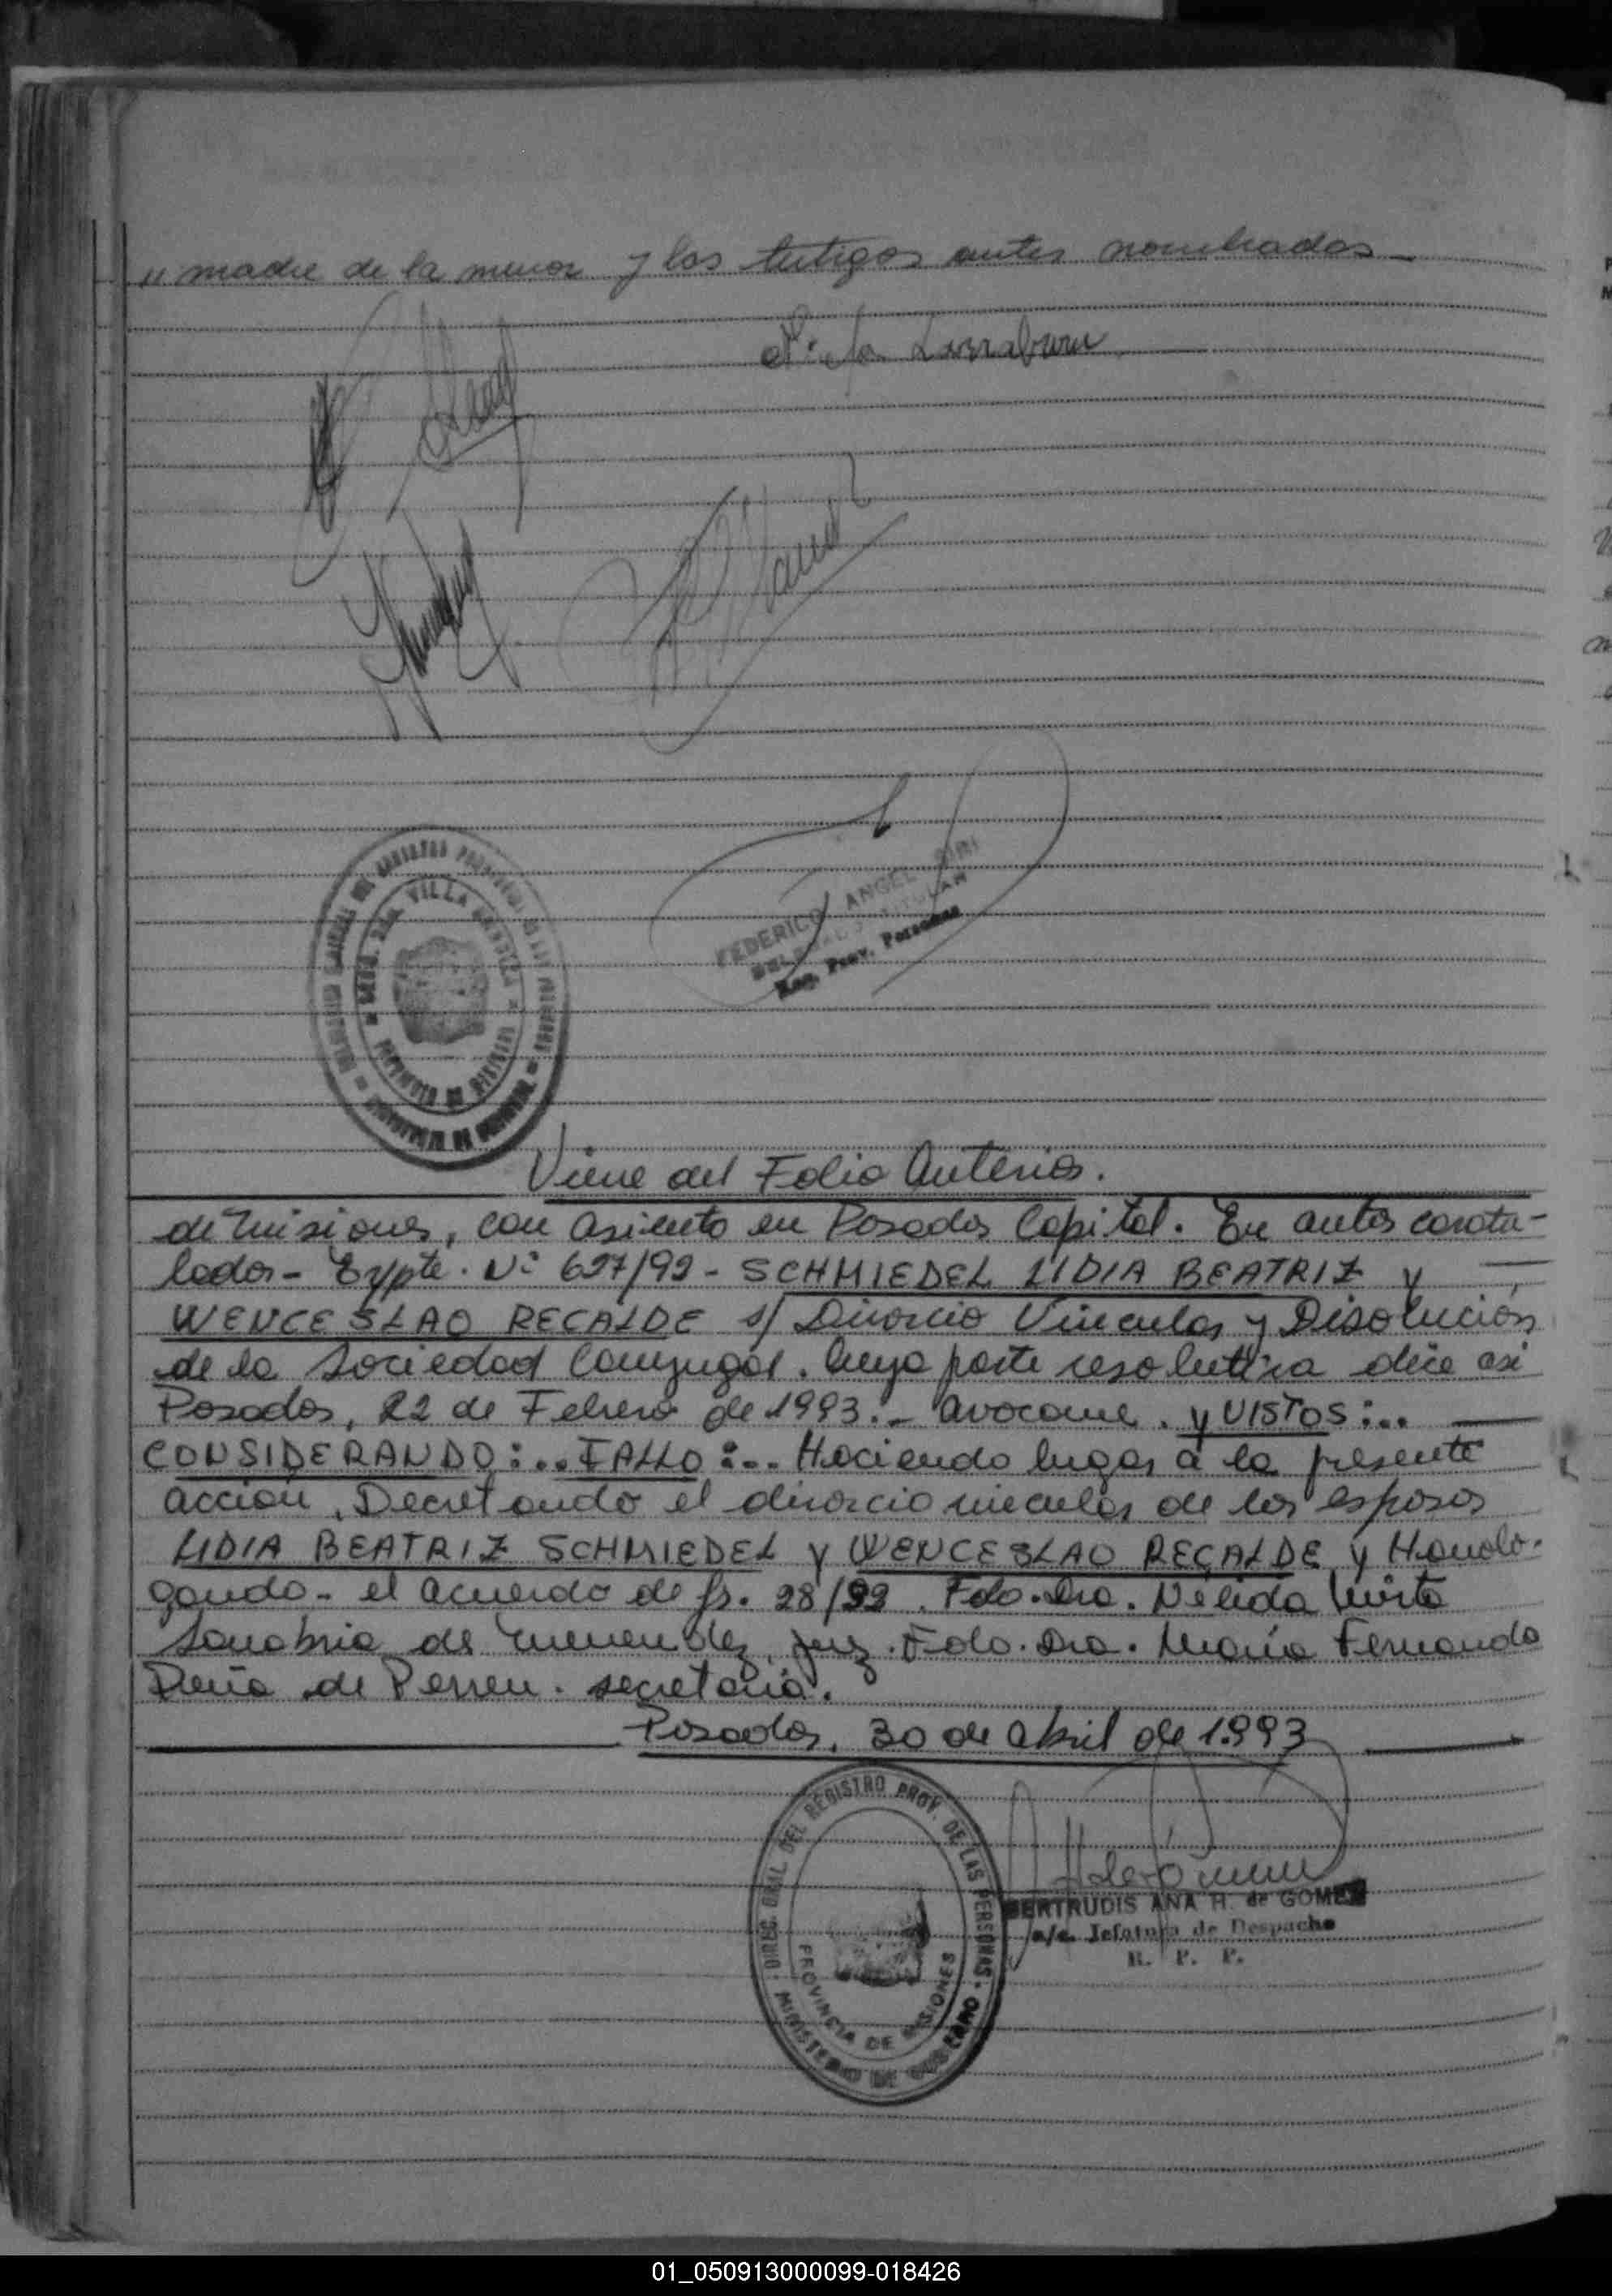 " madre de la menor y los testigos antes nombrados
Larraburu
FEDERICO ANGEL SIRI
DELEGADO TITULAR
Reg. Prov. Personas
VILLA
PROVINCIA DE MISIONES
Viene del Folio Anterior.
de Misiones, con asiento en Posadas Capital. En autos caratu-
lados - Expte. Nº 627/92 - SCHMIEDEL LIDIA BEATRIZ y
WENCESLAO RECALDE s/ Divorcio Vincular y Disolución
de la Sociedad Conyugal. Cuya parte resolutiva dice asi
Posadas, 22 de Febrero de 1993.- avocome. y VISTOS:..
CONSIDERANDO:.. FALLO:... Haciendo lugar a la presente
acción, Decretando el divorcio vincular de los esposos
LIDIA BEATRIZ SCHMIEDEL y WENCESLAO RECALDE y Homolo-
gando - el acuerdo de fs. 28/32. Fdo. Dra. Nélida Mirta
Sanabria de Menendez, Juez. Fdo. Dra. María Fernanda
de Perren. secretaria.
Posadas, 30 de abril de 1.993
DIREC. GRAL DEL REGISTRO PROV. DE LAS PERSONAS - MINISTERIO DE GOBIERNO
PROVINCIA DE MISIONES
GERTRUDIS ANA H. de GOMEZ
a/c. Jefatura de Despacho
R. P. P.
01_050913000099-018426